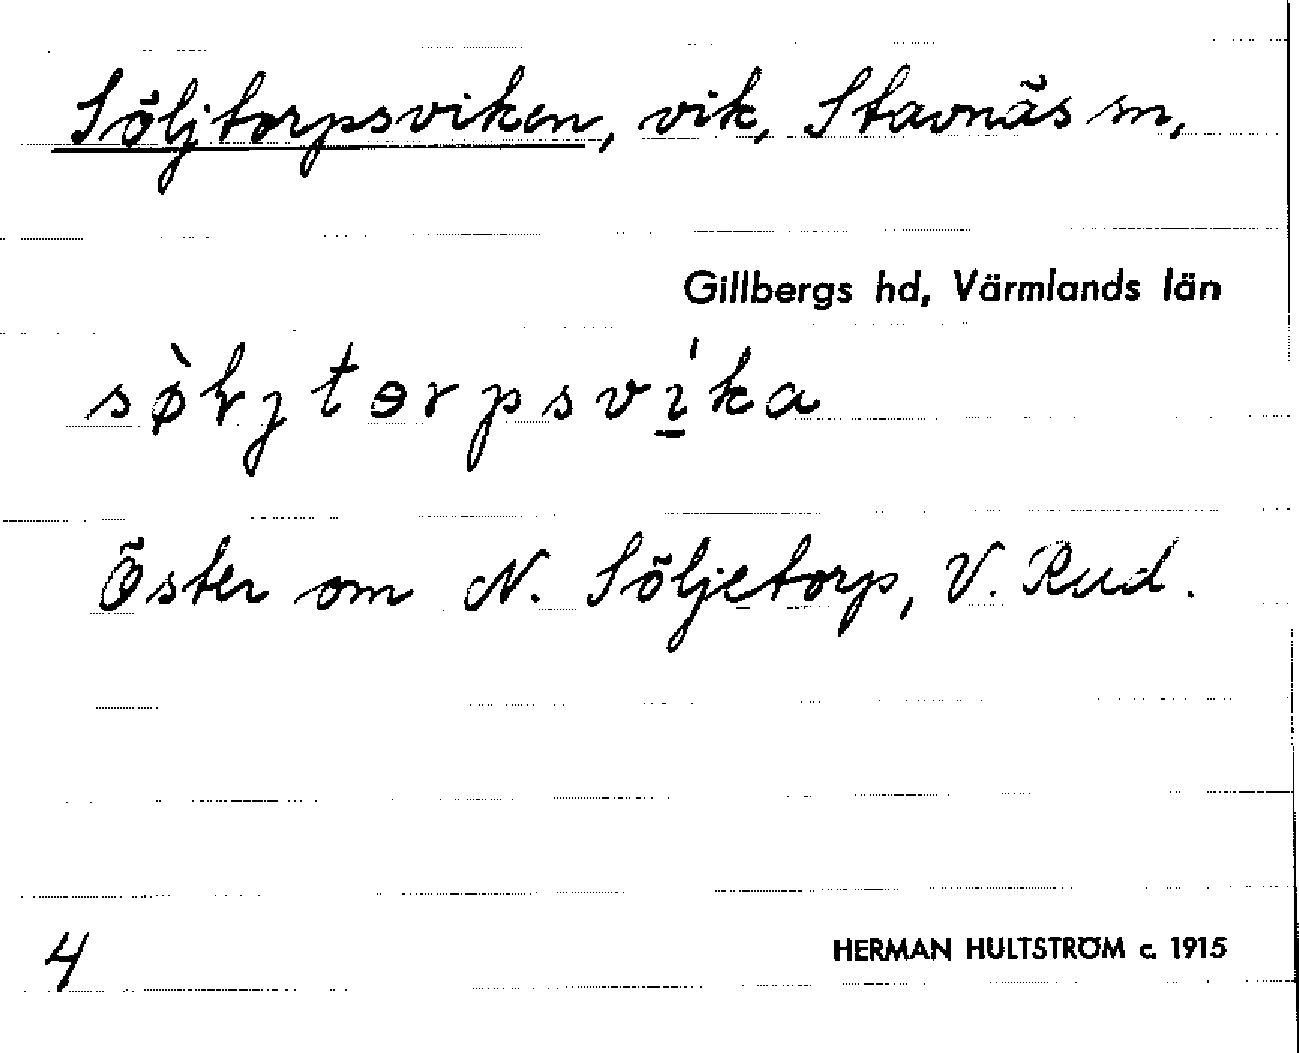 Söljtorpsviken, vik, Stavnäs sn,
Gillbergs hd, Värmlands län
Öster om N. Söljetorp, V. Rud.
4
HERMAN HULTSTRÖM c. 1915